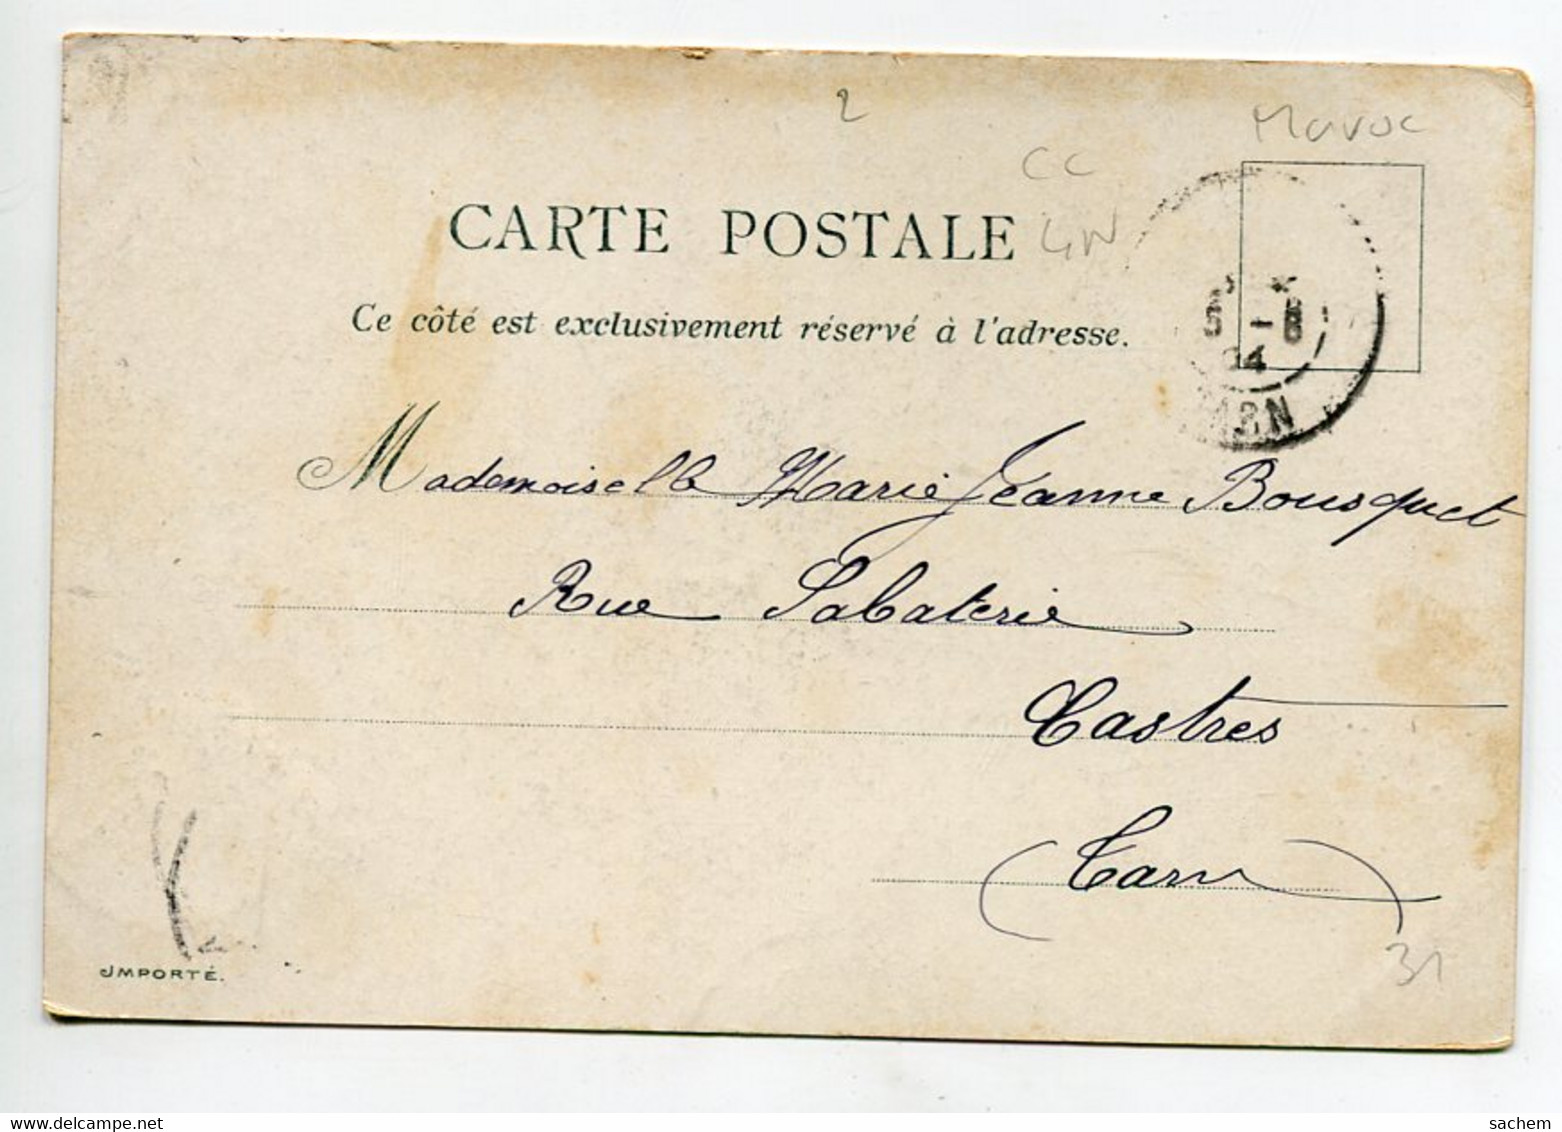 2
Maroc
CC
CARTE POSTALE
Ce côté est exclusivement réservé à l'adresse.
5 - 8
04
Mademoiselle Marie Jeanne Bousquet
Rue Sabaterie
Castres
(Tarn)
31
IMPORTÉ.
delcampe.net
sachem